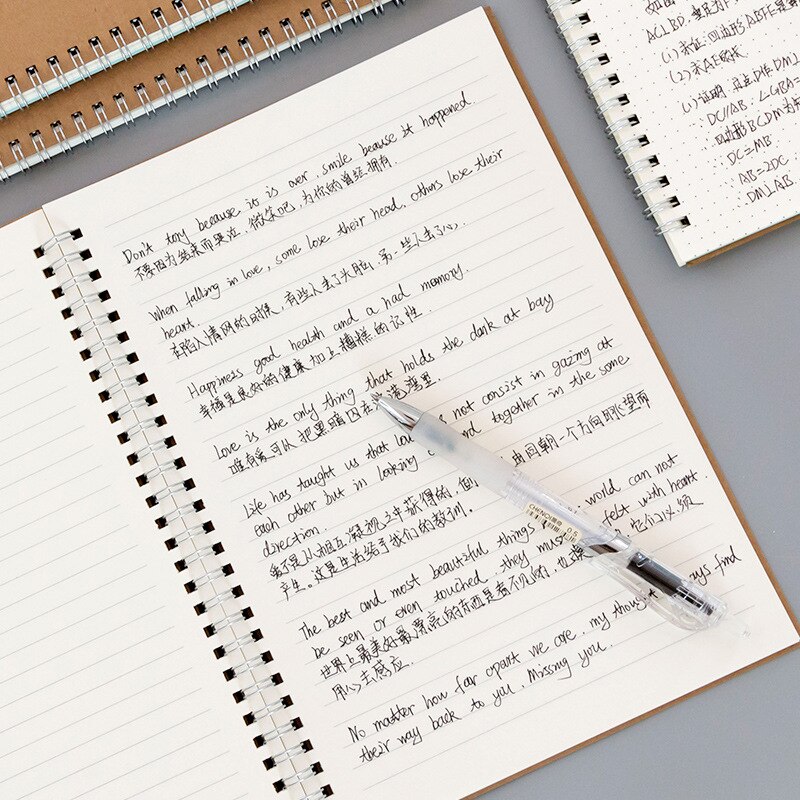 Don't tory because it is over, smile beause it happened.
不要因为结束而哭泣. 微笑吧, 为你的曾经拥有.
When falling in love, some lose their head, others lose their
heart.
在陷入情网的时候, 有些人丢了头脑, 另一些人丢了心.
Happiness good health and a had memory.
幸福是良好的健康加上糟糕的记性.
Love is the only thing that holds the dark at bay
唯有爱可以把黑暗囚在港湾里.
Life has taught us that not consist in gazing at
each other but in looking together in the same
direction.
爱不是从相互凝视之中获得的, 但 由同朝一个方向眺望而
产生. 这是生活给予我们的教训.
The best and most beautiful things world can not
be seen or even touched, they must felt with heart.
世界上最美好最漂亮的东西是看不见的, 也 它们必须
用心去感应.
No matter how far apart we are, my thought find
their way back to you. Missing you.
CHENGU 0.5
AC⊥BD,
(1) 求证: 四边形ABFE是
(2) 求AE的长
(1) 证明:
DC//AB,
DC=MB
AB=2DC
DM⊥AB